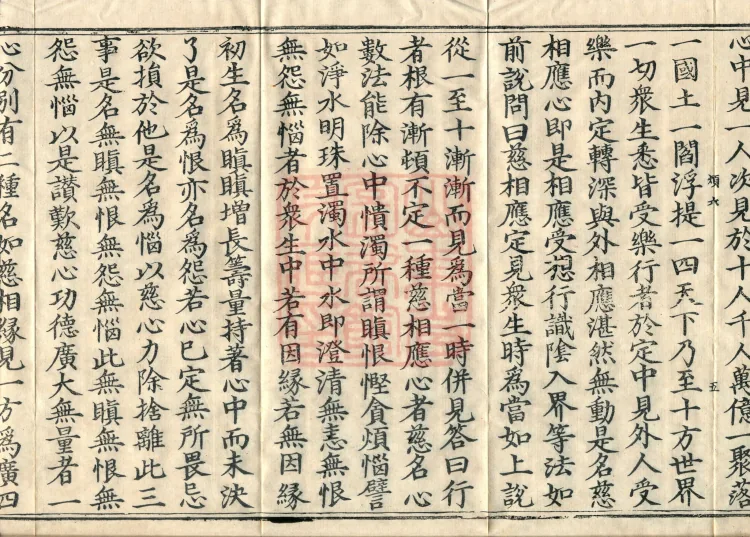 心中見一人次見於十人千人萬億一聚落
五
一國土一閻浮提一四天下乃至十方世界
一切衆生悉皆受樂行者於定中見外人受
樂而內定轉深與外相應湛然無動是名慈
相應心即是相應受想行識陰入界等法如
前說問曰慈相應定見衆生時爲當如上說
從一至十漸漸而見爲當一時併見答曰行
者根有漸頓不定一種慈相應心者慈名心
數法能除心中憒濁所謂瞋恨慳貪煩惱譬
如淨水明珠置濁水中水即澄清無恚無恨
無怨無惱者於衆生中若有因緣若無因緣
初生名爲瞋瞋增長籌量持著心中而未決
了是名爲恨亦名爲怨若心已定無所畏忌
欲損於他是名爲惱以慈心力除捨離此三
事是名無瞋無恨無怨無惱此無瞋無恨無
怨無惱以是讚歎慈心功德廣大無量者一
心分別有二種名如慈相緣見一方爲廣四